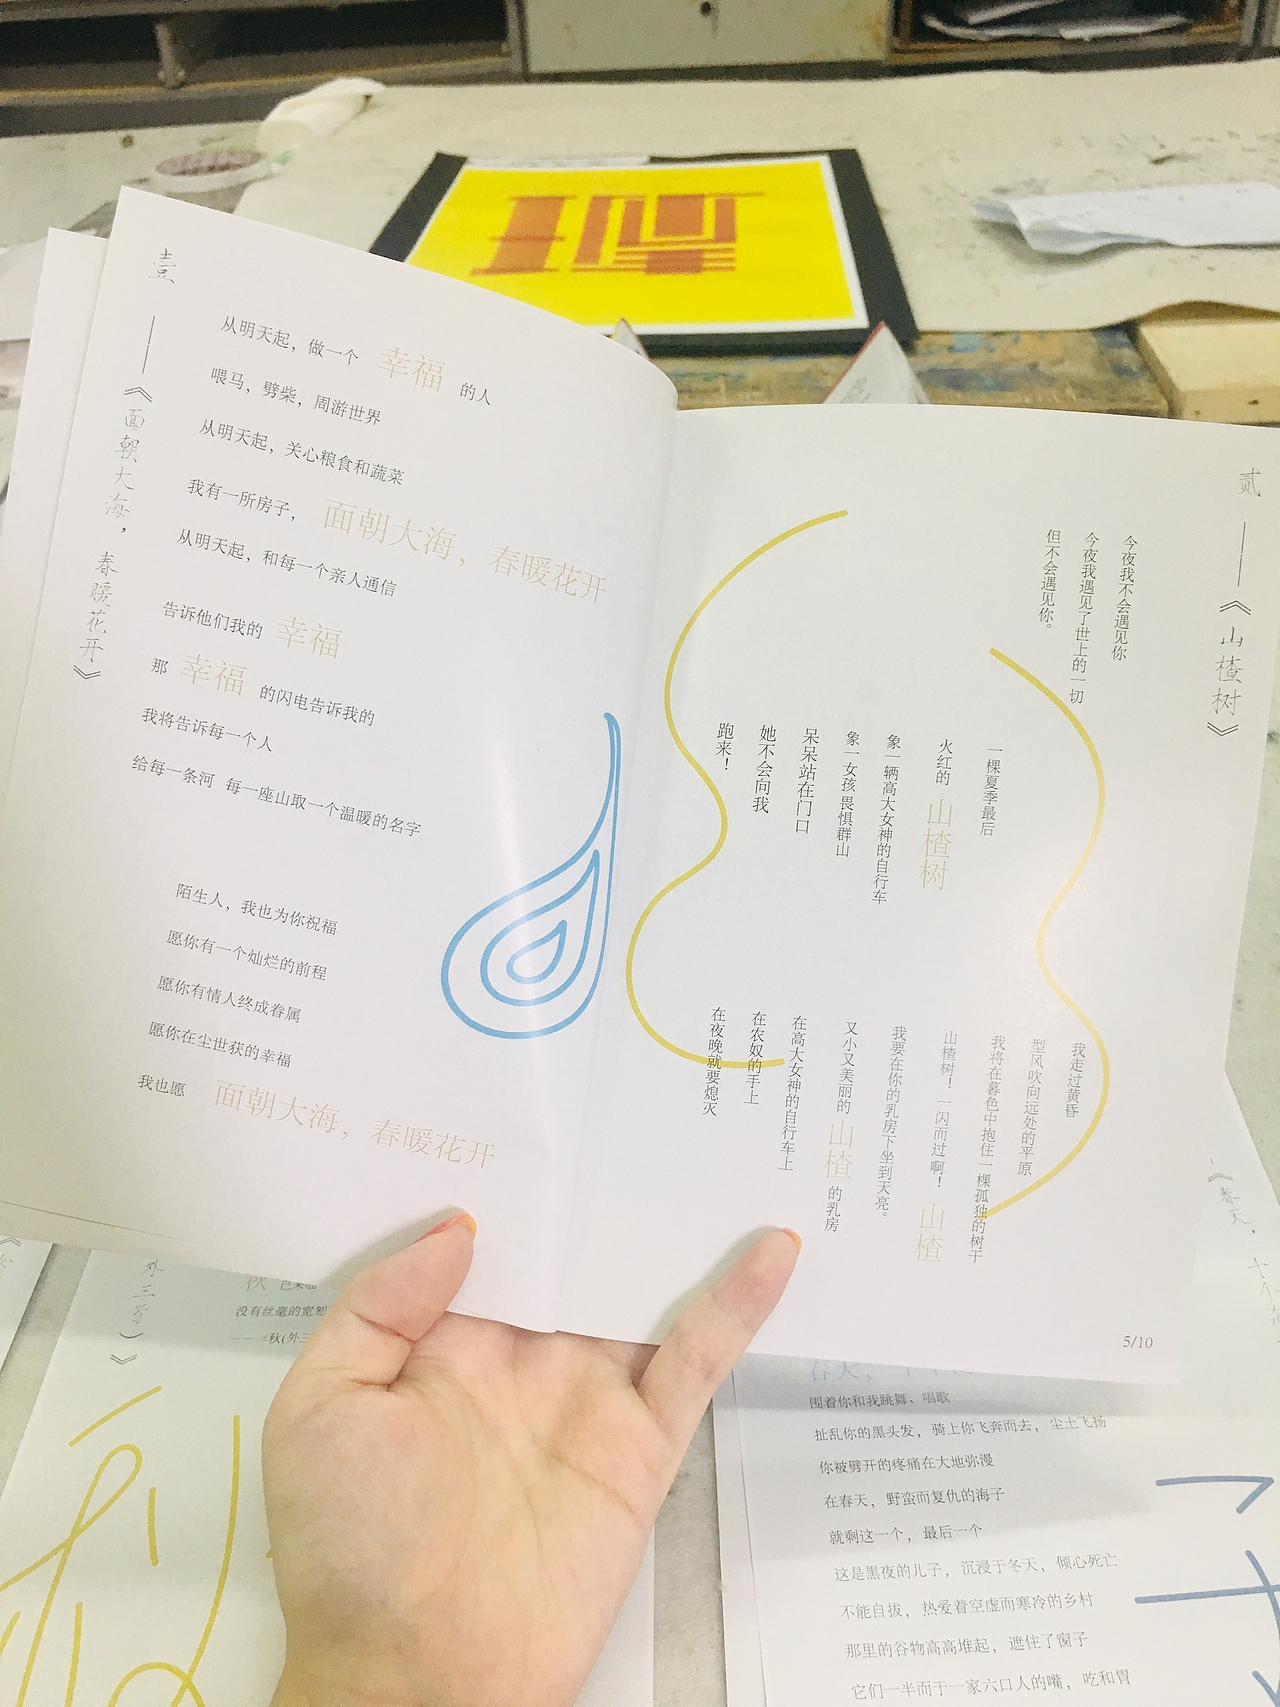 壹——《面朝大海，春暖花开》
从明天起，做一个 幸福 的人
喂马，劈柴，周游世界
从明天起，关心粮食和蔬菜
我有一所房子， 面朝大海，春暖花开
从明天起，和每一个亲人通信
告诉他们我的 幸福
那 幸福 的闪电告诉我的
我将告诉每一个人
给每一条河 每一座山取一个温暖的名字
陌生人，我也为你祝福
愿你有一个灿烂的前程
愿你有情人终成眷属
愿你在尘世获的幸福
我也愿 面朝大海，春暖花开
贰——《山楂树》
今夜我不会遇见你
今夜我遇见了世上的一切
但不会遇见你。
一棵夏季最后
火红的 山楂树
象一辆高大女神的自行车
象一女孩畏惧群山
呆呆站在门口
她不会向我
跑来！
我走过黄昏
型风吹向远处的平原
我将在暮色中抱住一棵孤独的树干
山楂树！一闪而过啊！ 山楂
我要在你的乳房下坐到天亮。
又小又美丽的 山楂 的乳房
在高大女神的自行车上
在农奴的手上
在夜晚就要熄灭
5/10
外三首）》
秋
没有丝毫的宽恕
—— 《秋(外三
《春天，十个
春天，
围着你和我跳舞、唱歌
扯乱你的黑头发，骑上你飞奔而去，尘土飞扬
你被劈开的疼痛在大地弥漫
在春天，野蛮而复仇的海子
就剩这一个，最后一个
这是黑夜的儿子，沉浸于冬天，倾心死亡
不能自拔，热爱着空虚而寒冷的乡村
那里的谷物高高堆起，遮住了窗子
它们一半而于一家六口人的嘴，吃和胃